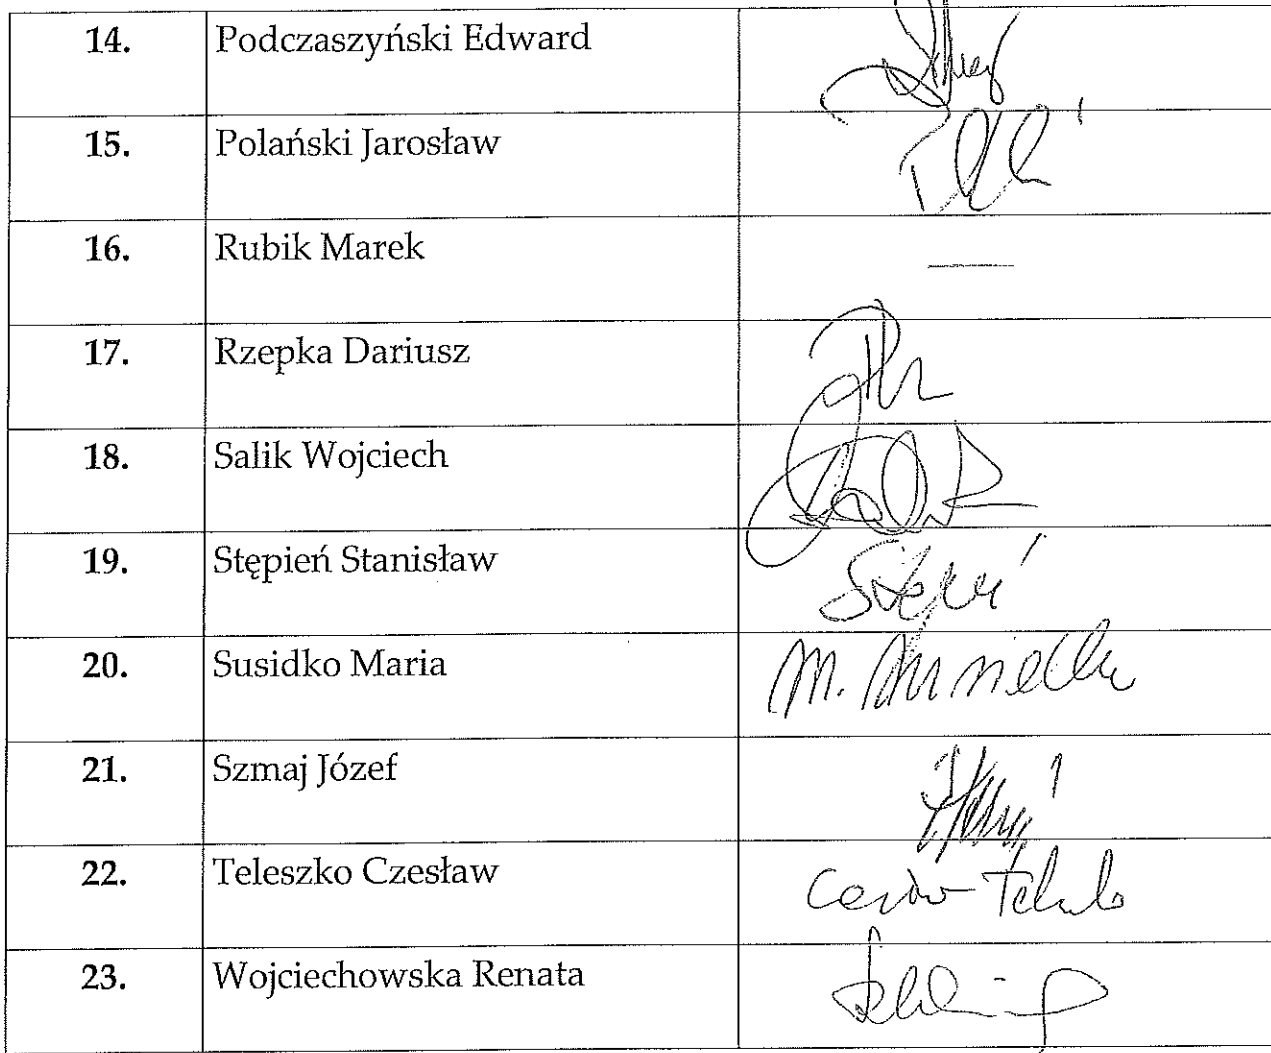 14. Podczaszyński Edward
15. Polański Jarosław
16. Rubik Marek —
17. Rzepka Dariusz
18. Salik Wojciech
19. Stępień Stanisław
20. Susidko Maria M.
21. Szmaj Józef
22. Teleszko Czesław
23. Wojciechowska Renata